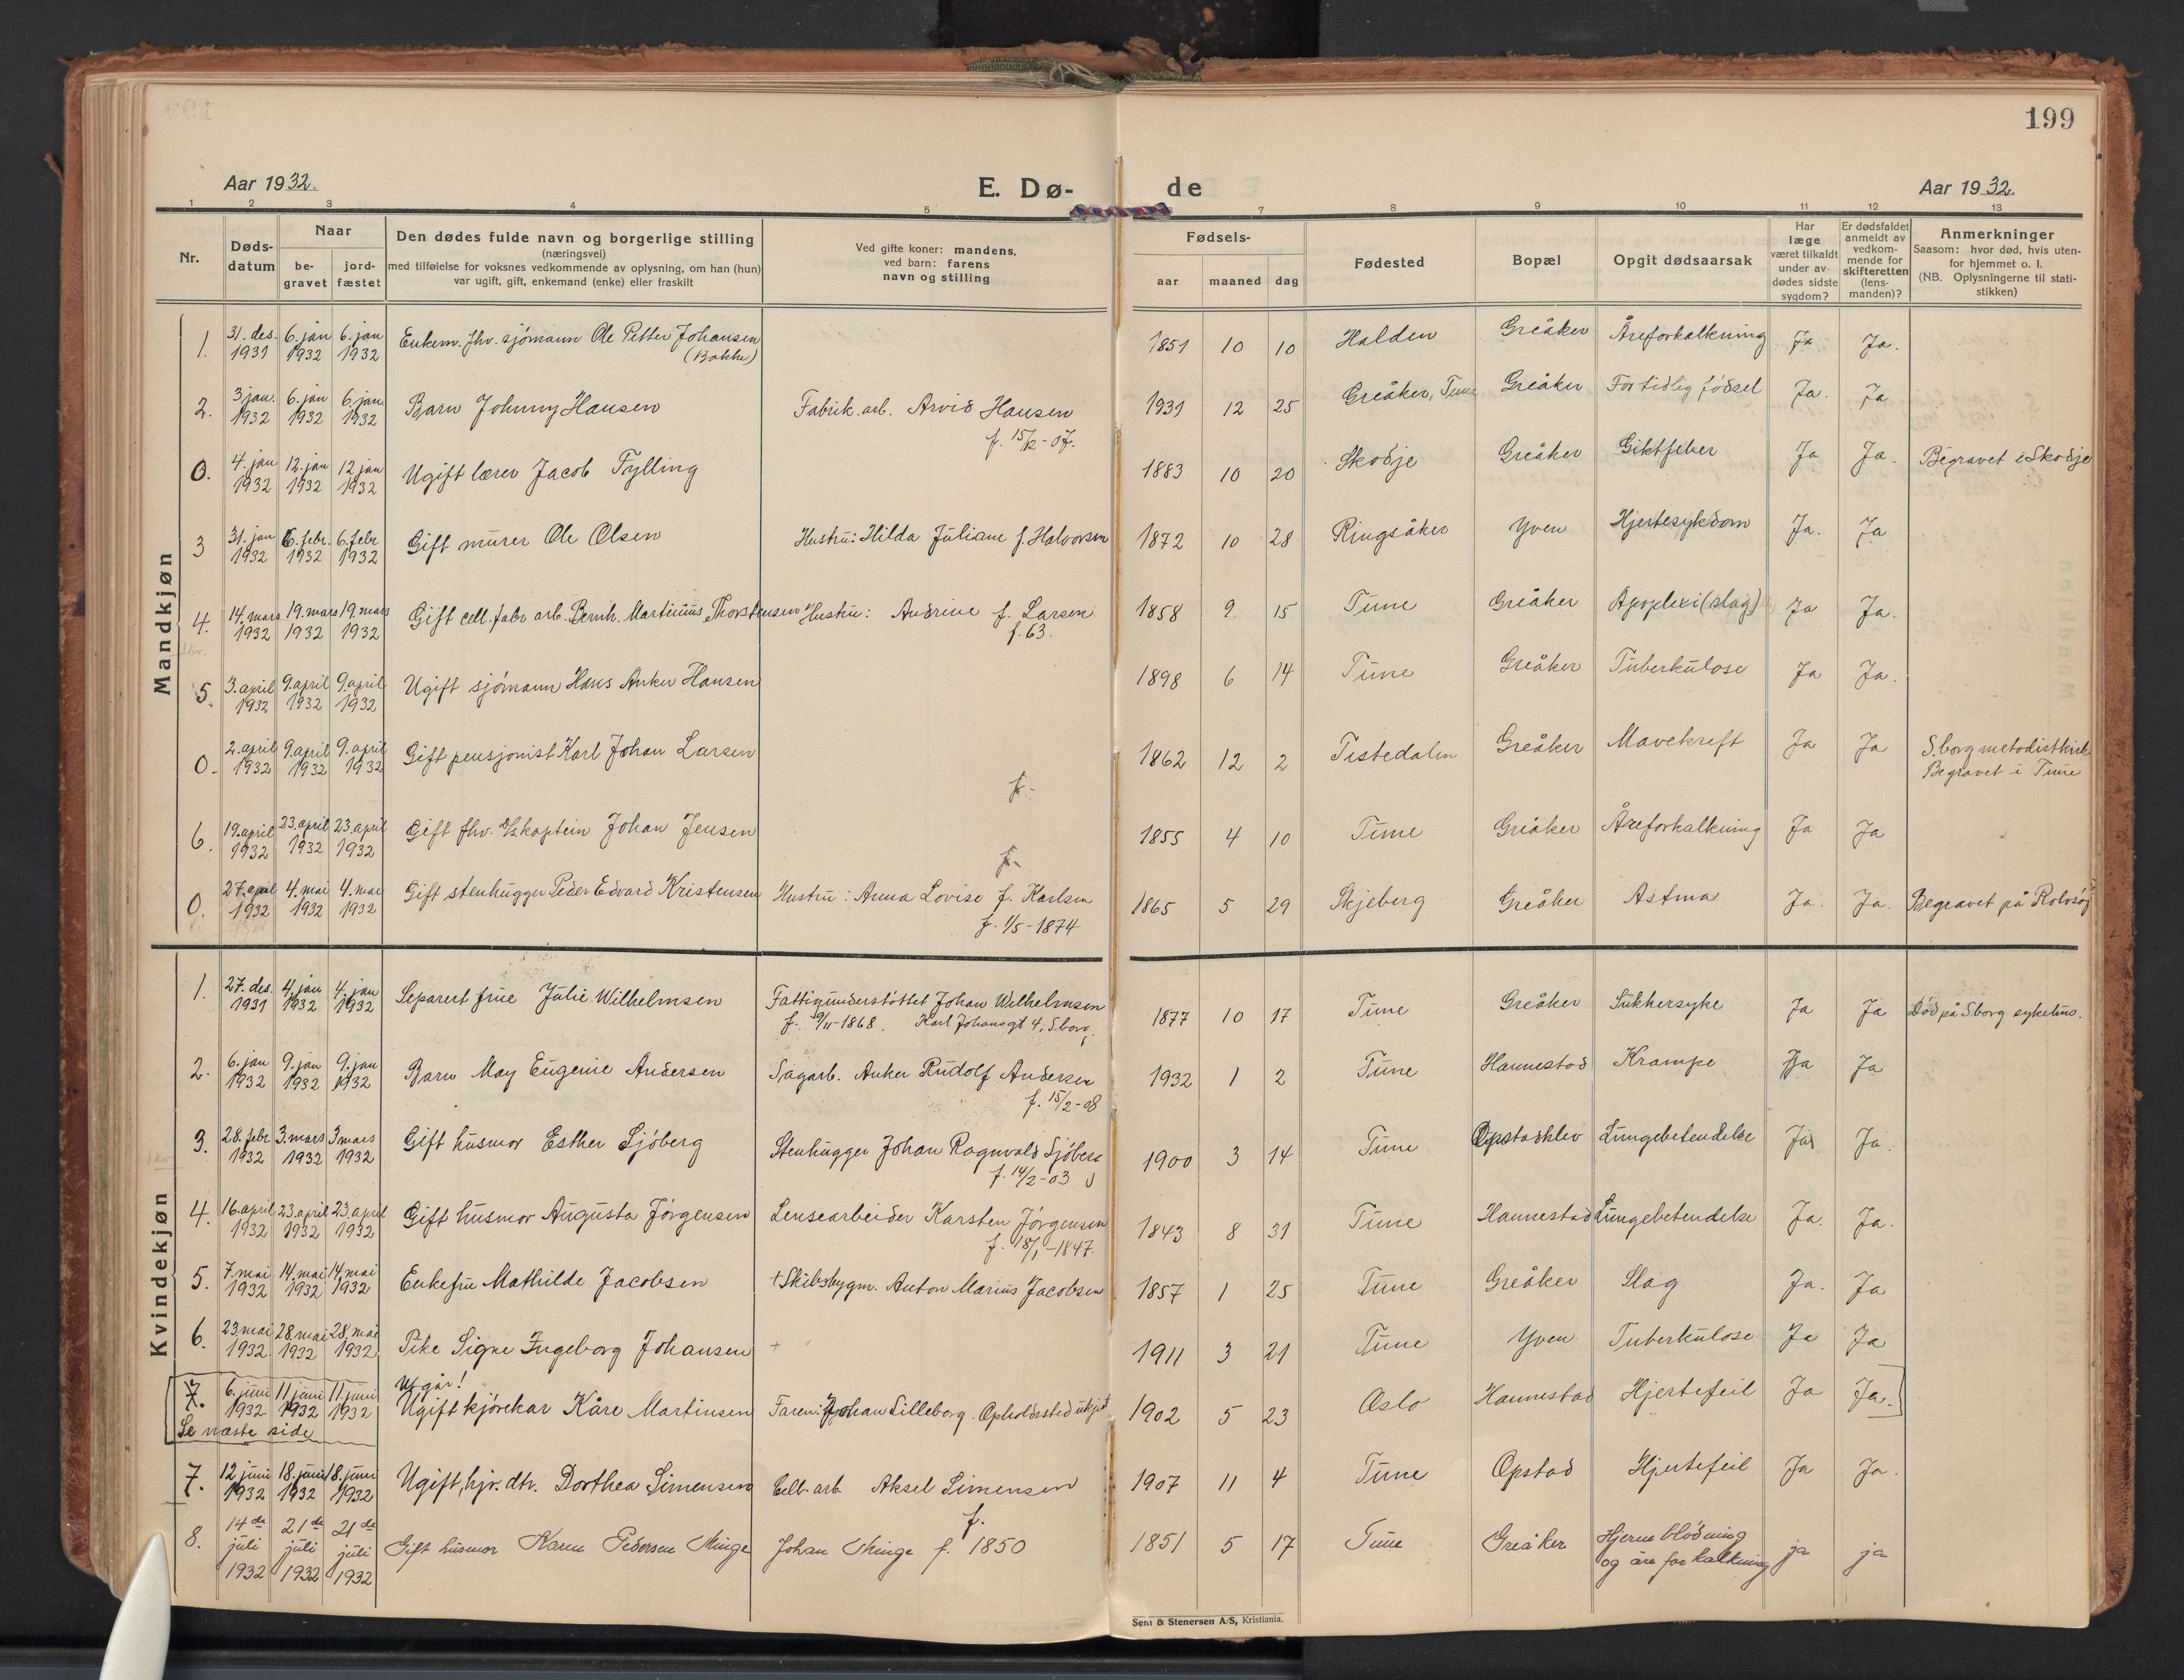 199
Aar 1932.
E. Dø- de
Aar 1932.
1 2 3 4 5 7 8 9 10 11 12 13
Nr.
Døds-
datum
Naar
be-
gravet
jord-
fæstet
Den dødes fulde navn og borgerlige stilling
(næringsvei)
med tilføielse for voksnes vedkommende av oplysning, om han (hun)
var ugift, gift, enkemand (enke) eller fraskilt
Ved gifte koner: mandens,
ved barn: farens
navn og stilling
Fødsels-
aar maaned dag
Fødested
Bopæl
Opgit dødsaarsak
Har
læge
været tilkaldt
under av-
dødes sidste
sygdom?
Er dødsfaldet
anmeldt av
vedkom-
mende for
skifteretten
(lens-
manden)?
Anmerkninger
Saasom: hvor død, hvis uten-
for hjemmet o. l.
(NB. Oplysningerne til stati-
stikken)
Mandkjøn
1. 31. des. 6. jan 6. jan Enkem. fhv. sjómann Ole Petter Johansen 1851 10 10 Halden Greåker Åreforkalkning Ja Ja.
1931 1932 1932 (Bakke)
2. 3 jan. 6. jan 6. jan. Barn Johnny Hansen Fabrik. arb. Arvid Hansen 1931 12 25 Greåker, Tune Greåker For tidlig fódsel Ja. Ja
1932 1932 1932 f. 15/12-07.
0. 4. jan 12. jan 12 jan Ugift lærer Jacob Fylling 1883 10 20 Skodje Greåker Giktfeber Ja Ja. Begravet i Skodje
1932 1932 1932
3 31. jan 6. febr. 6. febr Gift murer Ole Olsen Hustru: Hilda Juliane f. Halvorsen 1872 10 28 Ringsåker Yven Hjertesykdom Ja. Ja
1932 1932 1932
4. 14. mars 19. mars 19. mars Gift cell. fabr arb. Bernh. Martinius Thorstensen Hustru: Andrine f. Larsen 1858 9 15 Tune Greåker Apoplexi (slag) Ja Ja.
1932 1932 1932 f. 63.
5. 3. april 9. april 9. april Ugift sjómann Hans Anker Hansen 1898 6 14 Tune Greåker Tuberkulose Ja Ja.
1932 1932 1932
0. 2. april 9. april 9. april Gift pensjonist Karl Johan Larsen 1862 12 2 Tistedalen Greåker Mavekreft Ja Ja S.borg metodistkirke
1932 1932 1932 f. Begravet i Tune
6. 19. april 23. april 23. april Gift fhv. D/S kaptein Johan Jensen 1855 4 10 Tune Greåker Åreforkalkning Ja Ja
1932 1932 1932 f.
0. 27. april 4. mai 4. mai Gift stenhugger Peder Edvard Kristensen Hustru: Anna Lovise f. Karlsen 1865 5 29 Skjeberg Greåker Astma Ja. Ja. Begravet på Rolvsøy
1932 1932 1932 f. 1/5-1874
Kvindekjøn
1. 27. des. 4. jan 4. jan Separert frue Julie Wilhelmsen Fattigunderstóttet Johan Wilhelmsen 1877 10 17 Tune Greåker Sukkersyke Ja Ja Död på S.borg sykehus.
1931 1932 1932 f. 9/11-1868. Karl Johansgt 4, S.borg.
2. 6. jan 9. jan 9. jan Barn May Eugenie Andersen Sagarb. Anker Rudolf Andersen 1932 1 2 Tune Hannestad Krampe Ja Ja
1932 1932 1932 f. 15/2-08
3. 28. febr. 3. mars 3 mars Gift husmor Esther Sjóberg Stenhugger Johan Ragnvald Sjóberg 1900 3 14 Tune Opstadklev Lungebetendelse Ja Ja.
1932 1932 1932 f. 14/2-03
4. 16. april 23. april 23. april Gift husmor Augusta Jórgensen Lensearbeider Karsten Jórgensen 1843 8 31 Tune Hannestad Lungebetendelse Ja. Ja.
1932 1932 1932 f. 18/1-1847.
5. 7. mai 14. mai 14. mai Enkefru Mathilde Jacobsen † Skibsbygm. Anton Marius Jacobsen 1857 1 25 Tune Greåker Slag Ja. Ja
1932 1932 1932
6. 23. mai 28. mai 28. mai Pike Signe Ingeborg Johansen + 1911 3 21 Tune Yven Tuberkulose Ja Ja
1932 1932 1932
Utgår!
7. 6. juni 11 juni 11. juni Ugift kjórekar Kåre Martinsen Faren: Johan Lilleborg. Opholdssted ukjent 1902 5 23 Oslo Hannestad Hjertefeil Ja Ja.
1932 1932 1932
Se næste side
7. 12 juni 18. juni 18. juni Ugift, hjv. dtr. Dorthea Simensen Cell. arb. Aksel Simensen 1907 11 4 Tune Opstad Hjertefeil Ja Ja.
1932 1932 1932
8. 14de 21de 21de f.
juli juli juli Gift husmor Karen Pedersen Minge Johan Minge f. 1850 1851 5 17 Tune Greåker Hjerneblödning ja ja
1932 1932 1932 og åreforkalkning
Sem & Stenersen A/S, Kristiania.